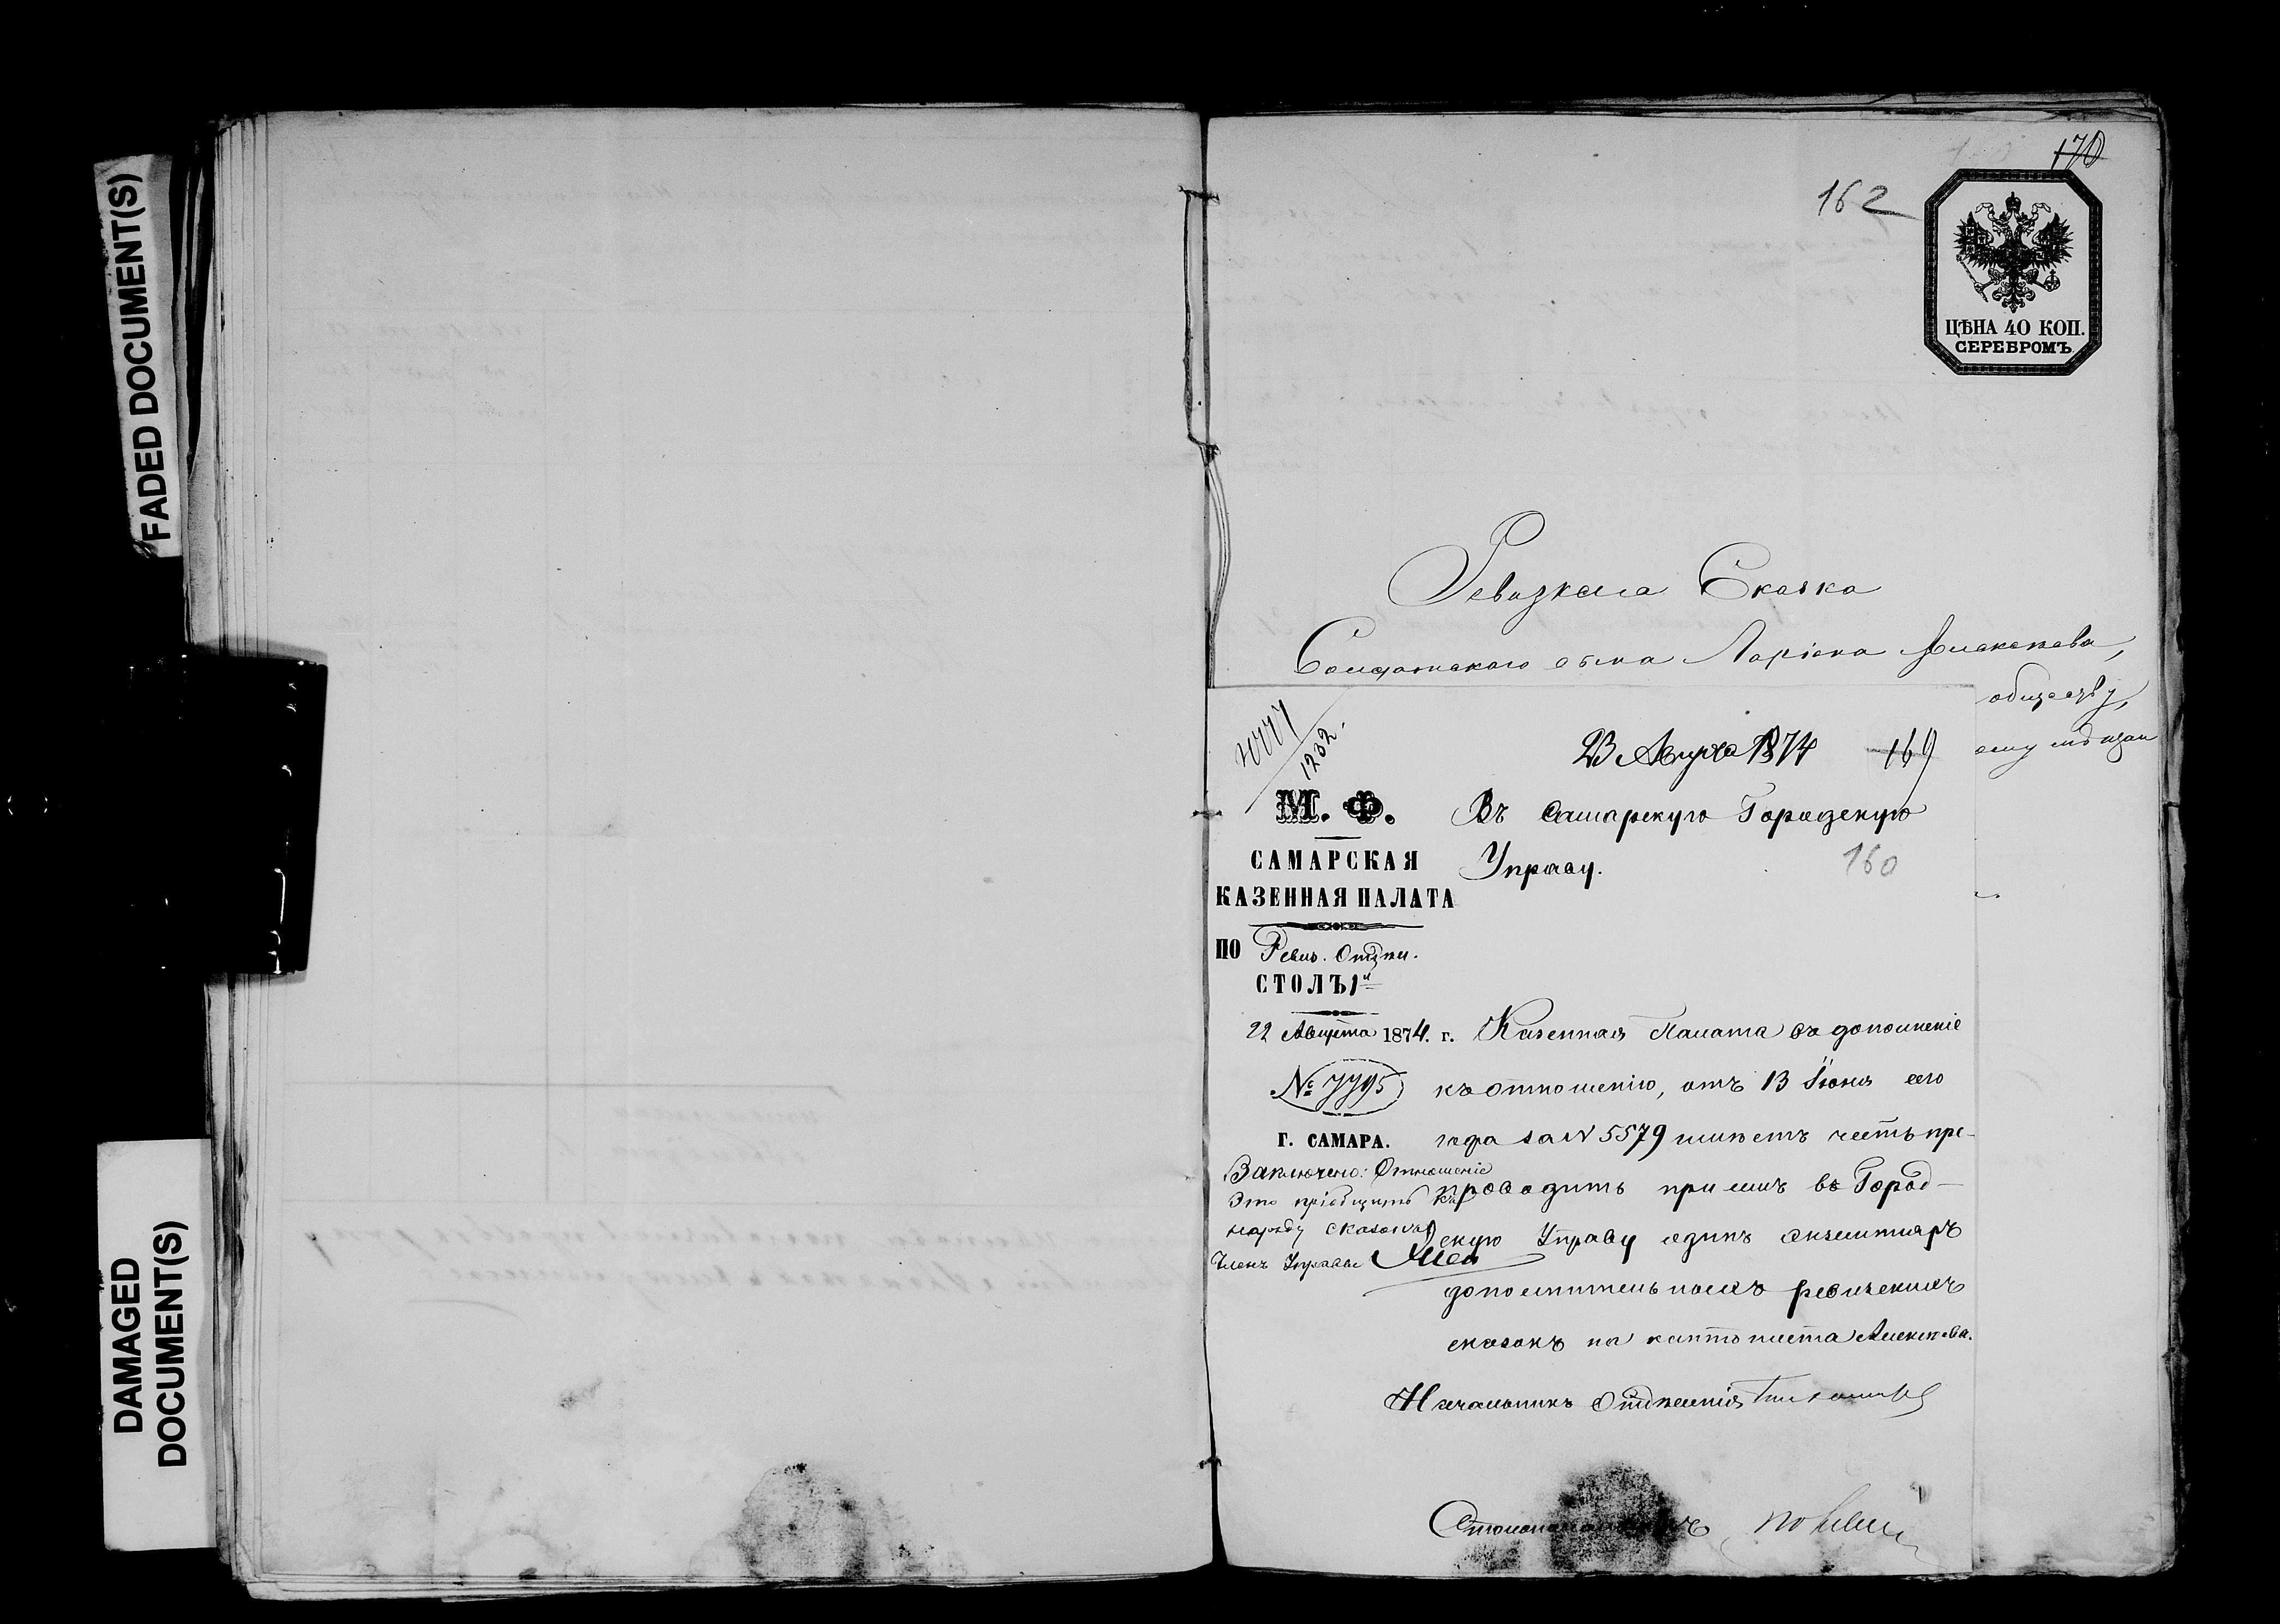 FADED DOCUMENT(S)
DAMAGED
DOCUMENT(S)
170
162
ЦѢНА 40 КОП.
СЕРЕБРОМЪ
Ревизская Сказка
Солдатскаго сына Ларіона Алексѣева,
обществу,
1232
23 Августа 1874
169
М. Ф.
Въ Самарскую Городскую
САМАРСКАЯ
Управу.
160
КАЗЕННАЯ ПАЛАТА
ПО Ревиз. Отдѣл.
СТОЛЪ 1й
22 Августа 1874. г.
Казенная Палата въ дополненіе
№ 7795
къ отношенію, отъ 13 Іюня сего
Г. САМАРА.
года за N 5579 имѣетъ честь пре-
Заключено: Отношеніе
проводить при семъ въ Город-
Это пріобщить къ
наряду сказокъ
скую Управу одинъ экземпляръ
Членъ Управы
дополнительныхъ ревизскихъ
сказокъ на кантониста Алексѣева.
Начальникъ Отдѣленія
Столоначальникъ